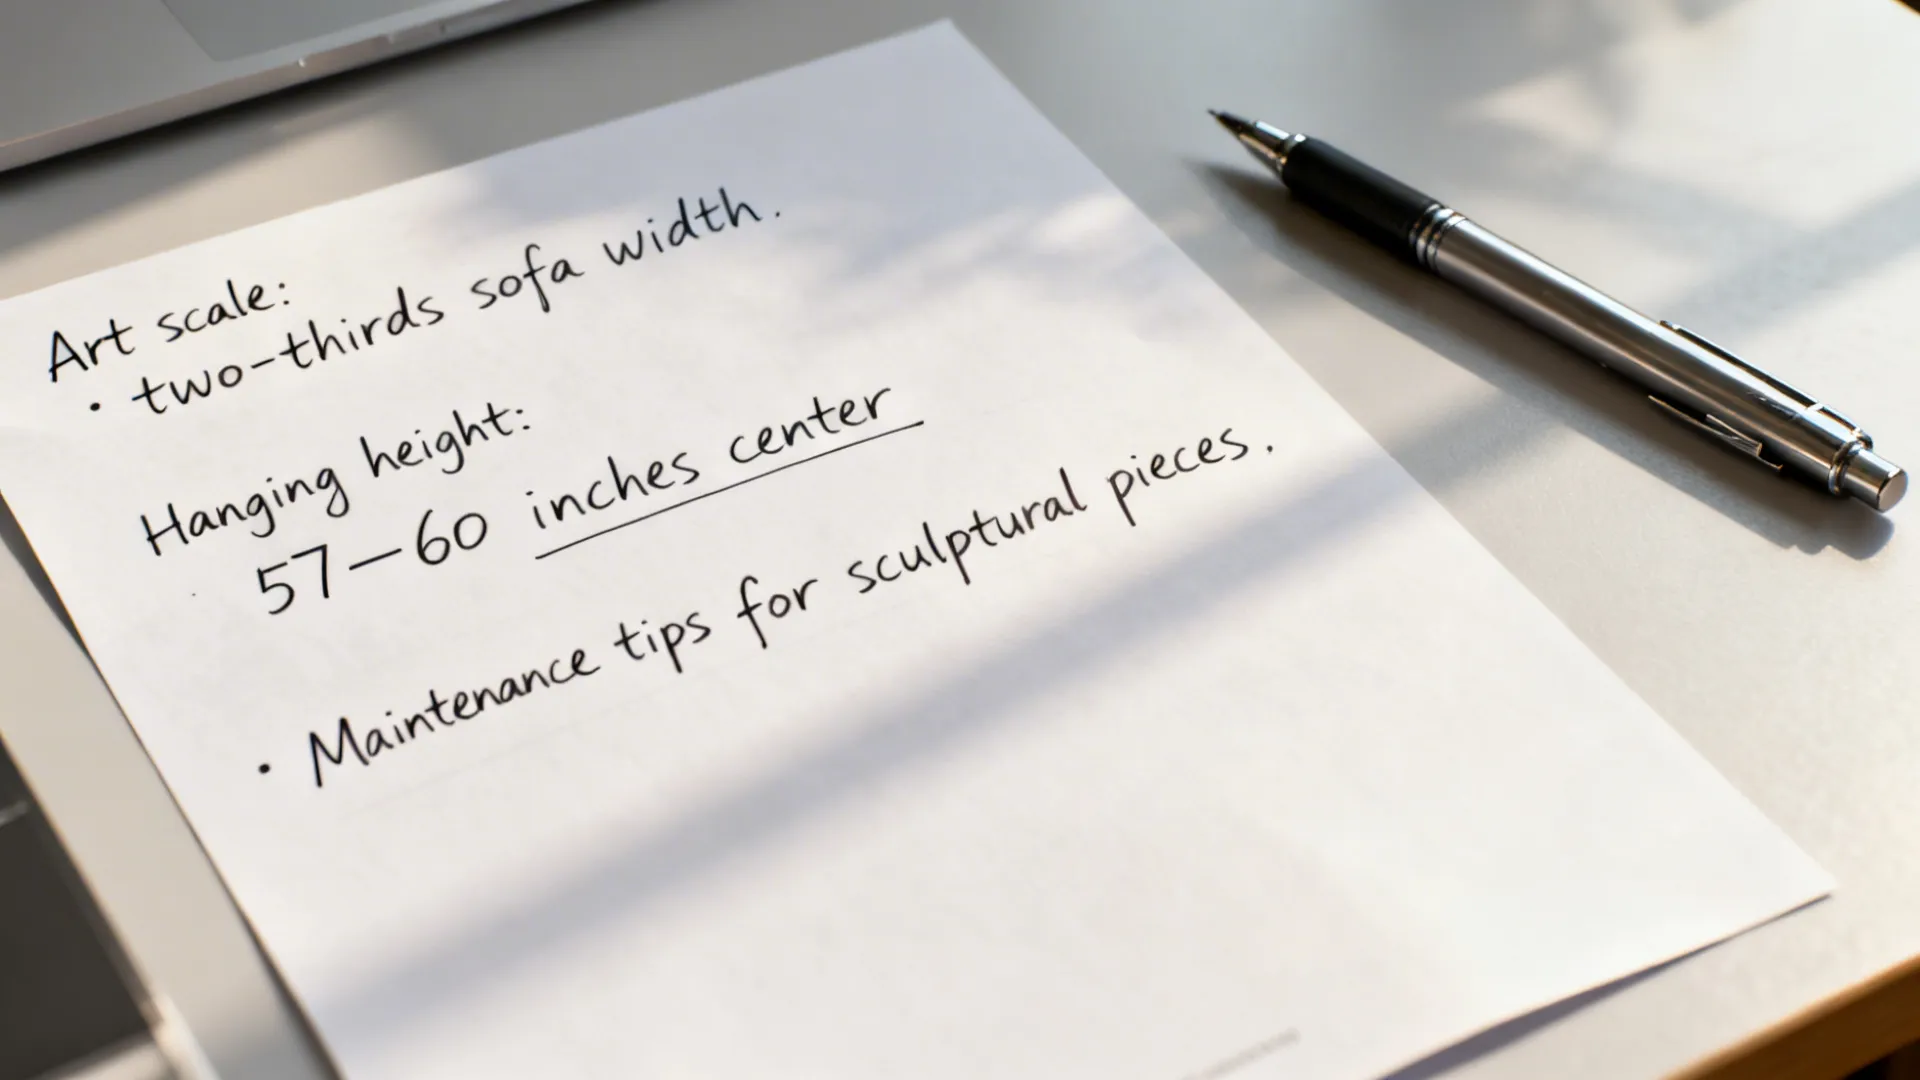 Art scale:
• two-thirds sofa width.
Hanging height:
57–60 inches center
• Maintenance tips for sculptural pieces.